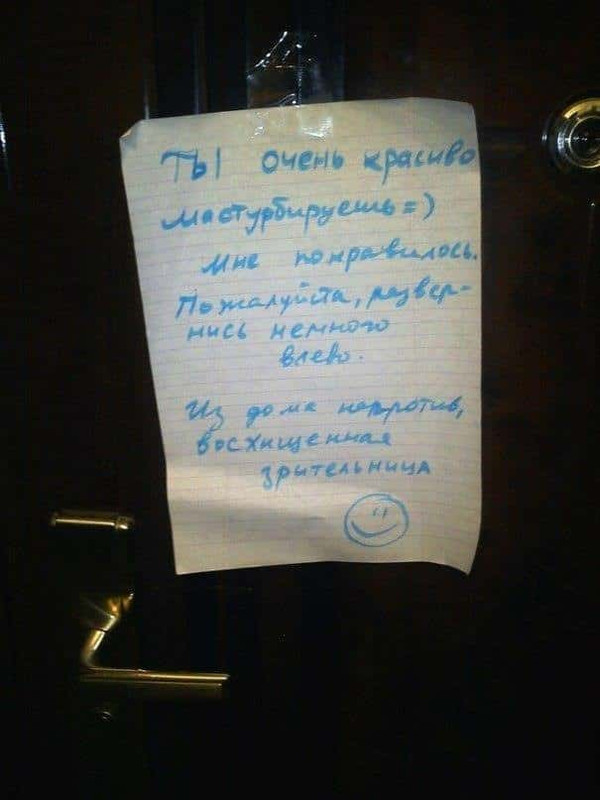 Ты очень красиво
мастурбируешь =)
мне понравилось.
Пожалуйста, развер-
нись немного
влево.
Из дома напротив,
восхищенная
зрительница